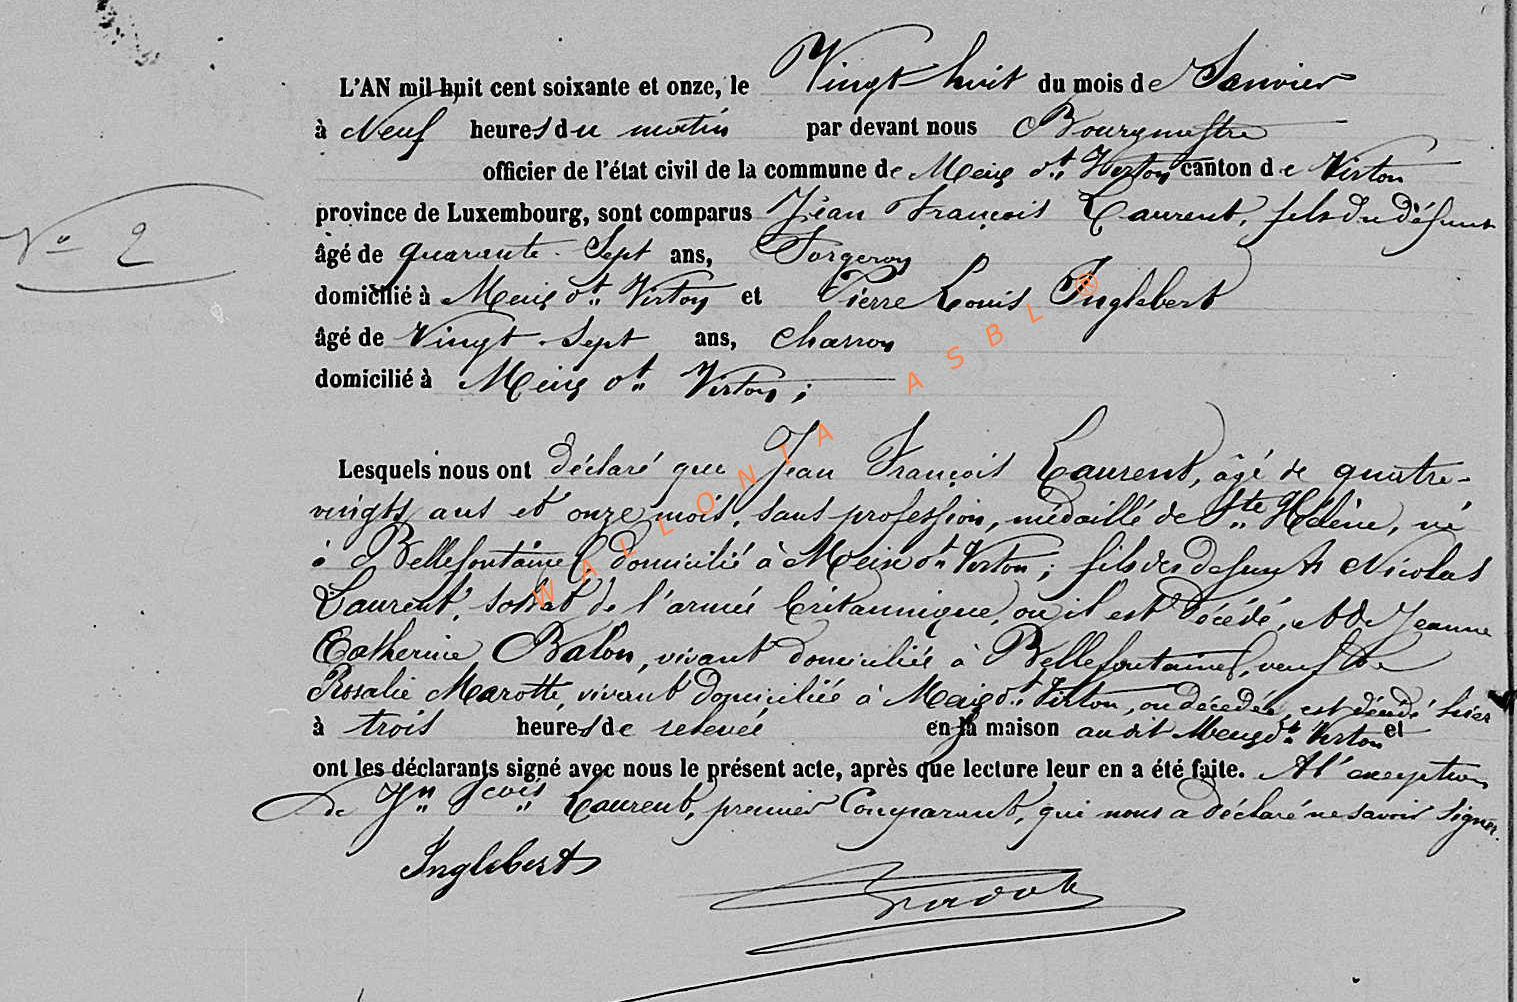 L'AN mil huit cent soixante et onze, le Vingt huit du mois de Janvier
à Neuf heures du matin par devant nous Bourgmestre
officier de l'état civil de la commune de Meix dt Virton canton de Virton
province de Luxembourg, sont comparus Jean François Laurent, fils du défunt
N° 2
âgé de quarante-sept ans, Forgeron
domicilié à Meix dt Virton et Pierre Louis Inglebert
âgé de Vingt-sept ans, charron
domicilié à Meix dt Virton;
Lesquels nous ont déclaré que Jean François Laurent, âgé de quatre-
vingts ans et onze mois, sans profession, médaillé de Ste Hélène, né
à Bellefontaine, domicilié à Meix dt Virton; fils des defunts Nicolas
Laurent, soldat de l'armée britannique, où il est décédé, et de Jeanne
Catherine Balon, vivant domiciliée à Bellefontaine, veuf de
Rosalie Marotte, vivant domiciliée à Meix dt Virton, ou décédée, est décédé hier
à trois heures de relevée en sa maison audit Meix dt Virton et
ont les déclarants signé avec nous le présent acte, après que lecture leur en a été faite. A l'exception
de Jn Fcois Laurent, premier Comparant, qui nous a déclaré ne savoir signer.
Inglebert
WALLONIA ASBL ®